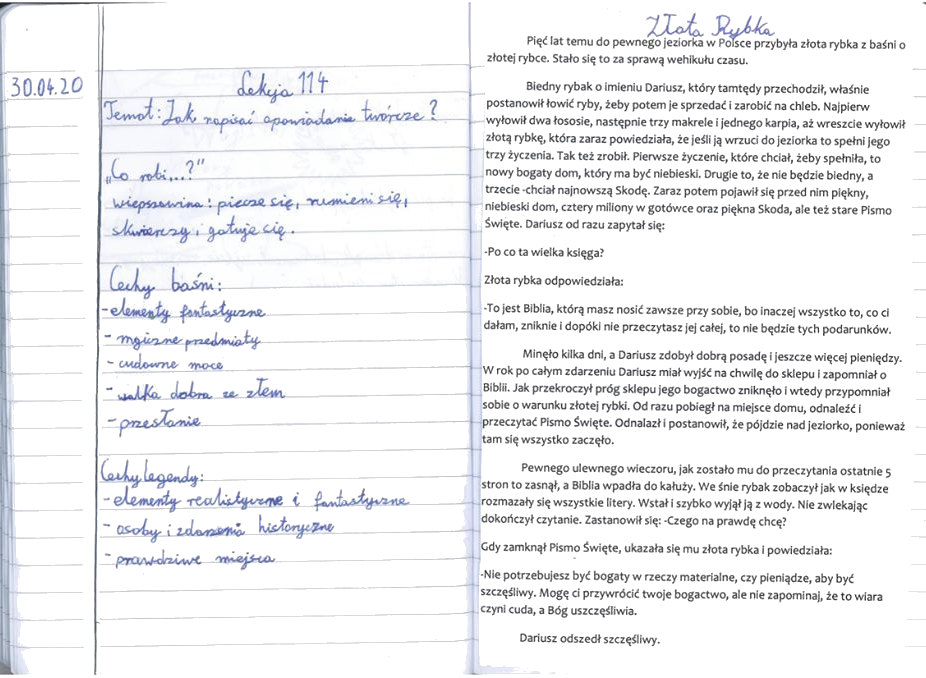 30.04.20
Lekcja 114
Temat: Jak napisać opowiadanie twórcze?
„Co robi...?"
wieprzowina: piecze się, rumieni się,
skwierczy i gotuje się.
Cechy baśni:
- elementy fantastyczne
- magiczne przedmioty
- cudowne moce
- walka dobra ze złem
- przesłanie
Cechy legendy:
- elementy realistyczne i fantastyczne
- osoby i zdarzenia historyczne
- prawdziwe miejsca
Złota Rybka
Pięć lat temu do pewnego jeziorka w Polsce przybyła złota rybka z baśni o
złotej rybce. Stało się to za sprawą wehikułu czasu.
Biedny rybak o imieniu Dariusz, który tamtędy przechodził, właśnie
postanowił łowić ryby, żeby potem je sprzedać i zarobić na chleb. Najpierw
wyłowił dwa łososie, następnie trzy makrele i jednego karpia, aż wreszcie wyłowił
złotą rybkę, która zaraz powiedziała, że jeśli ją wrzuci do jeziorka to spełni jego
trzy życzenia. Tak też zrobił. Pierwsze życzenie, które chciał, żeby spełniła, to
nowy bogaty dom, który ma być niebieski. Drugie to, że nie będzie biedny, a
trzecie -chciał najnowszą Skodę. Zaraz potem pojawił się przed nim piękny,
niebieski dom, cztery miliony w gotówce oraz piękna Skoda, ale też stare Pismo
Święte. Dariusz od razu zapytał się:
-Po co ta wielka księga?
Złota rybka odpowiedziała:
-To jest Biblia, którą masz nosić zawsze przy sobie, bo inaczej wszystko to, co ci
dałam, zniknie i dopóki nie przeczytasz jej całej, to nie będzie tych podarunków.
Minęło kilka dni, a Dariusz zdobył dobrą posadę i jeszcze więcej pieniędzy.
W rok po całym zdarzeniu Dariusz miał wyjść na chwilę do sklepu i zapomniał o
Biblii. Jak przekroczył próg sklepu jego bogactwo zniknęło i wtedy przypomniał
sobie o warunku złotej rybki. Od razu pobiegł na miejsce domu, odnaleźć i
przeczytać Pismo Święte. Odnalazł i postanowił, że pójdzie nad jeziorko, ponieważ
tam się wszystko zaczęło.
Pewnego ulewnego wieczoru, jak zostało mu do przeczytania ostatnie 5
stron to zasnął, a Biblia wpadła do kałuży. We śnie rybak zobaczył jak w księdze
rozmazały się wszystkie litery. Wstał i szybko wyjął ją z wody. Nie zwlekając
dokończył czytanie. Zastanowił się: -Czego na prawdę chcę?
Gdy zamknął Pismo Święte, ukazała się mu złota rybka i powiedziała:
-Nie potrzebujesz być bogaty w rzeczy materialne, czy pieniądze, aby być
szczęśliwy. Mogę ci przywrócić twoje bogactwo, ale nie zapominaj, że to wiara
czyni cuda, a Bóg uszczęśliwia.
Dariusz odszedł szczęśliwy.